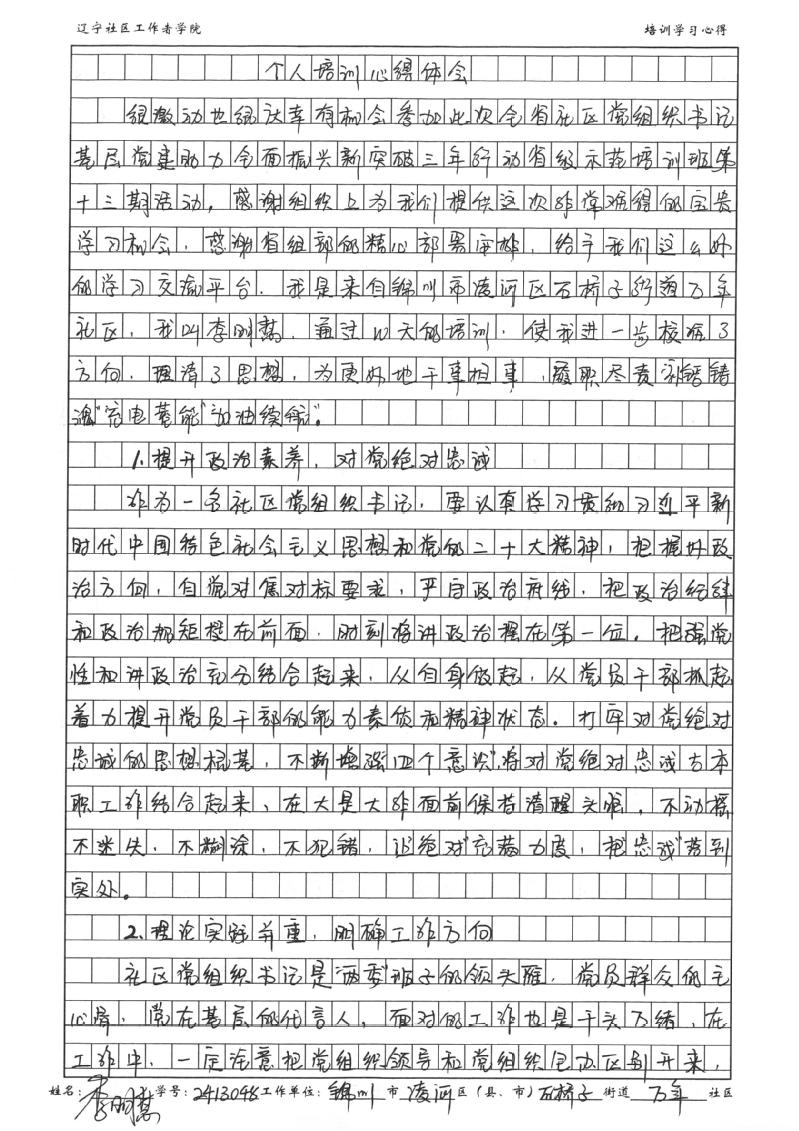 辽宁社区工作者学院 培训学习心得
个人培训心得体会
很激动也很荣幸有机会参加此次全省社区党组织书记
基层党建助力全面振兴新突破三年行动省级示范培训班第
十三期活动，感谢组织上为我们提供这次非常难得的宝贵
学习机会，感谢省组部的精心部署安排，给予我们这么好
的学习交流平台，我是来自锦州市凌河区石桥子街道万年
社区，我叫李明慧，通过10天的培训，使我进一步校准了
方向，理清了思想，为更好地干事担事，履职尽责积蓄铸
魂"充电蓄能"加油续航"。
1.提升政治素养，对党绝对忠诚
作为一名社区党组织书记，要认真学习贯彻习近平新
时代中国特色社会主义思想和党的二十大精神，把握好政
治方向，自觉对焦对标要求，严守政治底线，把政治纪律
和政治规矩挺在前面，时刻将讲政治摆在第一位。把强党
性和讲政治充分结合起来，从自身做起，从党员干部抓起
着力提升党员干部的能力素质和精神状态。打牢对党绝对
忠诚的思想根基，不断增强"四个意识"，将对党绝对忠诚与本
职工作结合起来，在大是大非面前保持清醒头脑，不动摇
不迷失，不糊涂，不犯错，让绝对"充满力度，把忠诚"落到
实处。
2.理论实践并重，明确工作方向
社区党组织书记是"两委"班子的领头雁，党员群众的主
心骨，党在基层的代言人，面对的工作也是千头万绪，在
工作中，一定注意把党组织领导和党组织包办区别开来，
姓名：李明慧 学号：2413048 工作单位：锦州 市 凌河 区（县、市）石桥子 街道 万年 社区